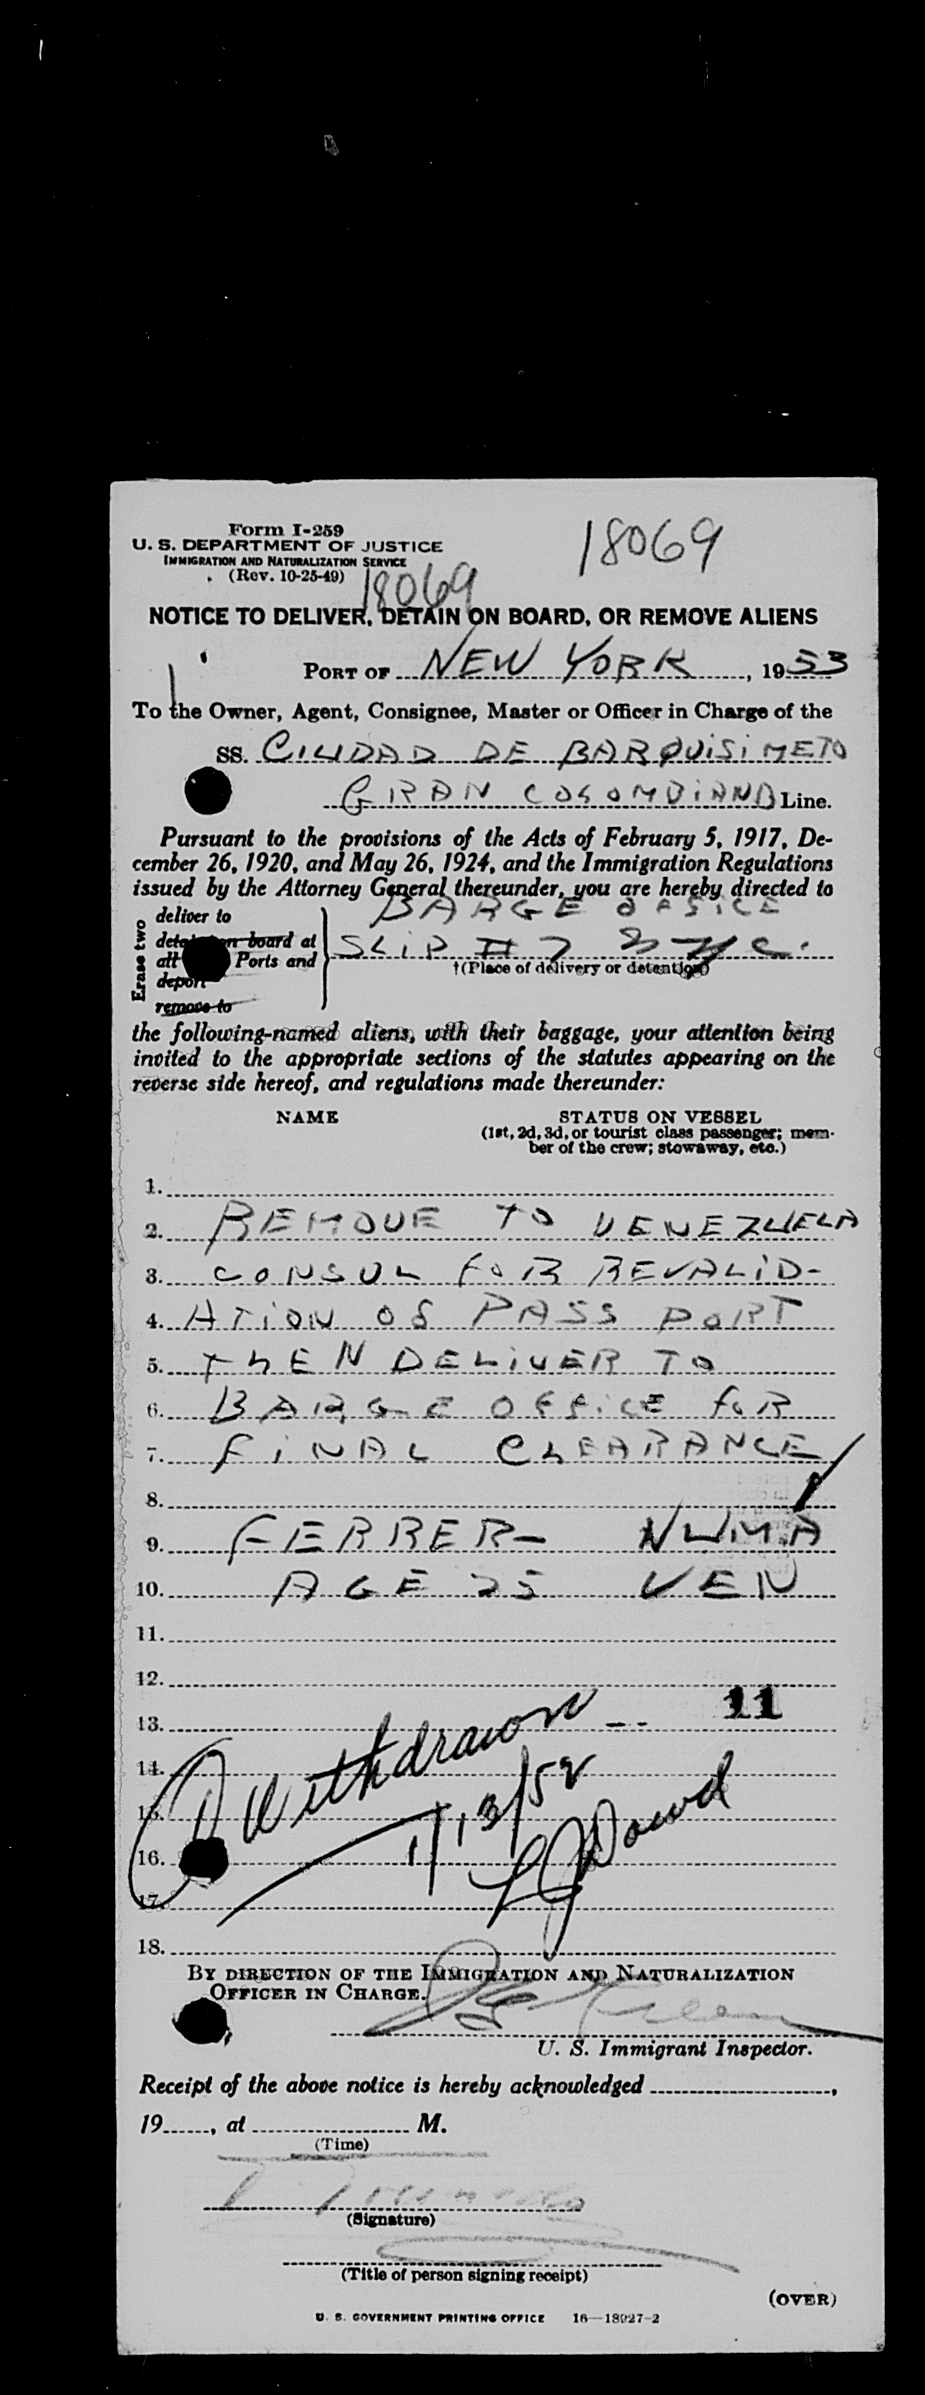 Form I-259
18069
U. S. DEPARTMENT OF JUSTICE
IMMIGRATION AND NATURALIZATION SERVICE
(Rev. 10-25-49)
18069
NOTICE TO DELIVER, DETAIN ON BOARD, OR REMOVE ALIENS
PORT OF NEW YORK, 1953
To the Owner, Agent, Consignee, Master or Officer in Charge of the
SS. CIUDAD DE BARQUISIMETO
GRAN COLOMBIANA Line.
Pursuant to the provisions of the Acts of February 5, 1917, De-
cember 26, 1920, and May 26, 1924, and the Immigration Regulations
issued by the Attorney General thereunder, you are hereby directed to
BARGE OFFICE
Erase two
deliver to
detain on board at
all Ports and
deport
remove to
SLIP # 7 NYC.
†(Place of delivery or detention)
the following-named aliens, with their baggage, your attention being
invited to the appropriate sections of the statutes appearing on the
reverse side hereof, and regulations made thereunder:
NAME STATUS ON VESSEL
(1st, 2d, 3d, or tourist class passenger; mem-
ber of the crew; stowaway, etc.)
1.
2. REMOVE TO VENEZUELA
3. CONSUL FOR REVALID-
4. ATION OF PASS PORT
5. THEN DELIVER TO
6. BARGE OFFICE FOR
7. FINAL CLEARANCE
8.
9. FERRER- NUMA
10. AGE 25 VEN
11.
12.
13. -- 11
Withdrawn
14.
1/13/52
15.
Dowd
16.
17.
18.
BY DIRECTION OF THE IMMIGRATION AND NATURALIZATION
OFFICER IN CHARGE.
U. S. Immigrant Inspector.
Receipt of the above notice is hereby acknowledged
19, at M.
(Time)
(Signature)
(Title of person signing receipt)
(OVER)
U. S. GOVERNMENT PRINTING OFFICE 16—18927-2